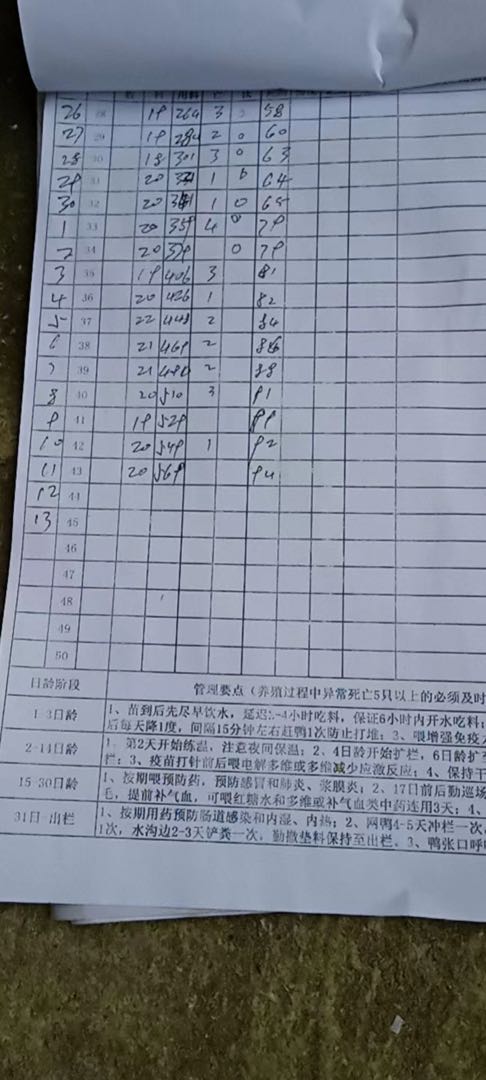 26 28 19 264 3 58
27 29 19 284 2 0 60
28 30 18 301 3 0 63
29 31 20 1 0 64
30 32 20 1 0 65
1 33 20 359 4 0 79
2 34 20 379 0 79
3 35 19 406 3 81
4 36 20 426 1 82
5 37 22 448 2 84
6 38 21 469 2
7 39 21 490 2 89
8 40 20 510 3 91
9 41 19 529
10 42 20 549 1 92
11 43 20 569 94
12 44
13 45
46
47
48
49
50
日龄阶段 管理要点（养殖过程中异常死亡5只以上的必须及时
1-3日龄 1、苗到后先尽早饮水，延迟2-4小时吃料，保证6小时内开水吃料；
后每天降1度，间隔15分钟左右赶鸭1次防止打堆；3、喂增强免疫
2-14日龄 1、第2天开始练温，注意夜间保温；2、4日龄开始扩栏，6日龄
栏；3、疫苗打针前后喂电解多维或多维减少应激反应；4、保持干
15-30日龄 1、按期喂预防药，预防感冒和肺炎、浆膜炎；2、17日前后勤巡场
毛，提前补气血，可喂红糖水和多维或补气血类中药连用3天；4、
31日-出栏 1、按期用药预防肠道感染和内湿、内热；2、网鸭4-5天冲栏一次，
1次，水沟边2-3天铲粪一次，勤撒垫料保持至出栏。3、鸭张口呼